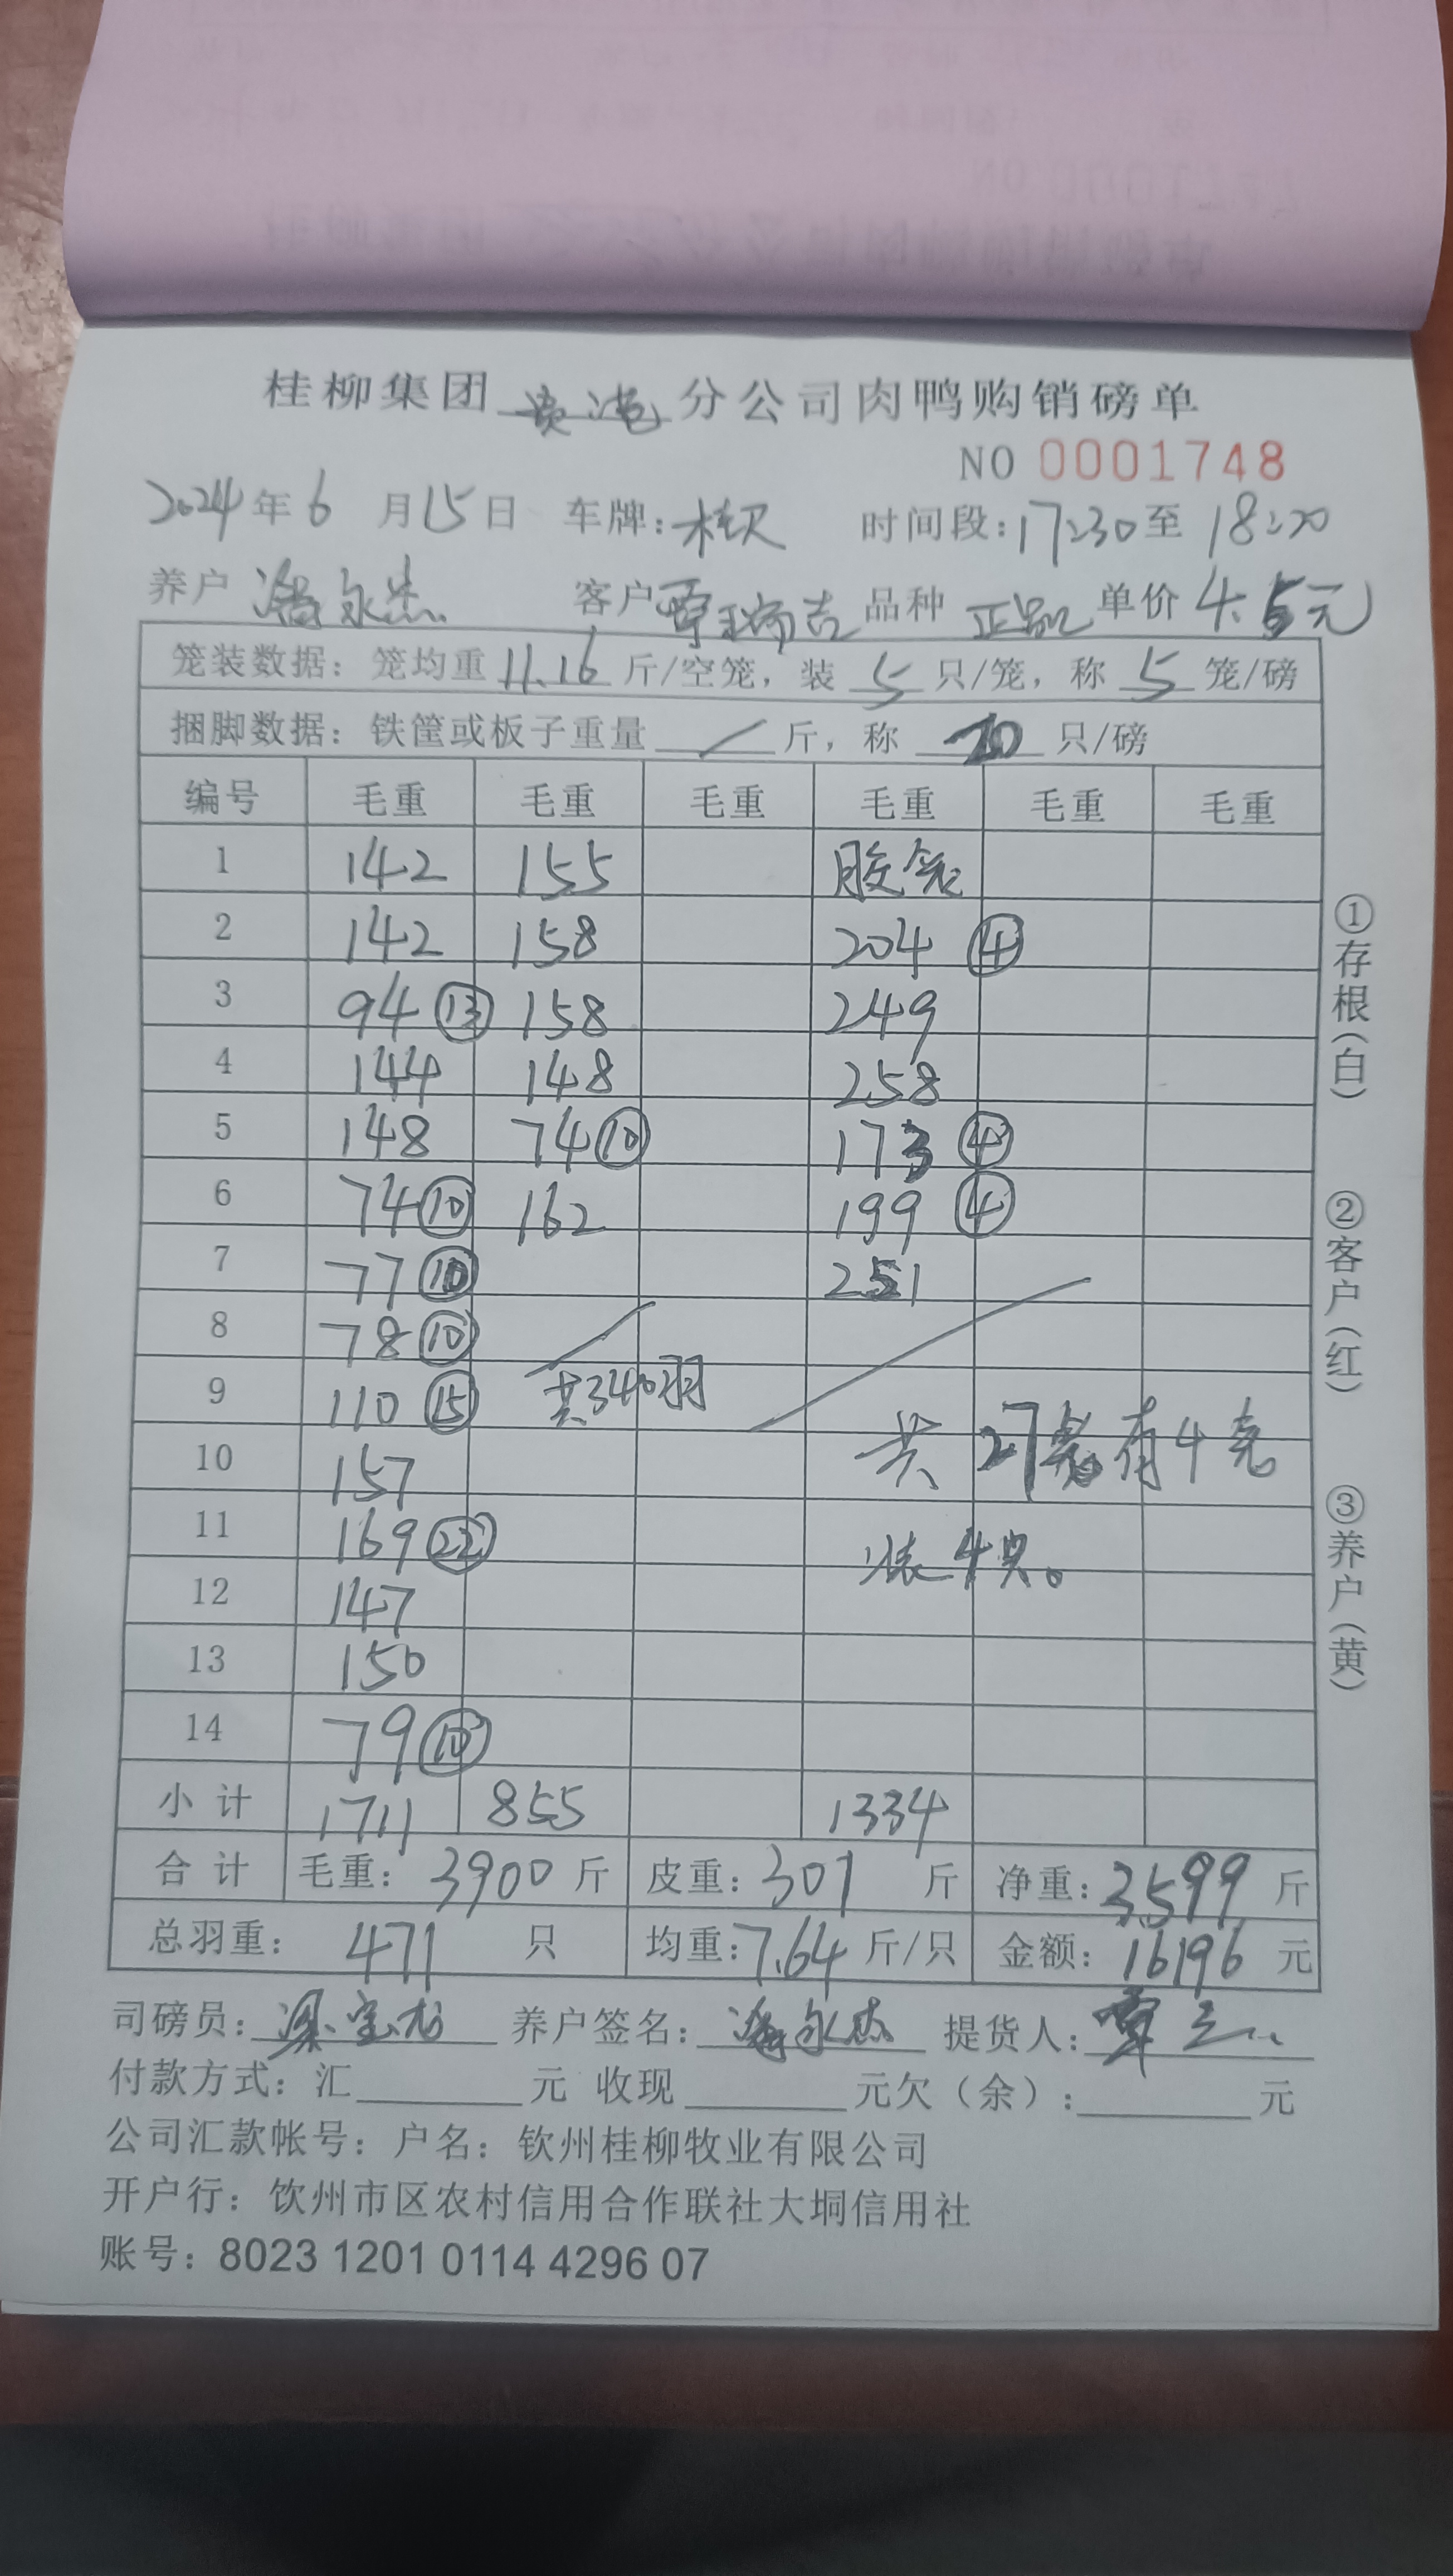 桂柳集团 贵港 分公司肉鸭购销磅单
NO 0001748
2024年6月15日 车牌: 时间段:17:30至18:20
养户 潘永杰 客户 覃瑞吉 品种 正品 单价 4.5元
笼装数据: 笼均重 11.16 斤/空笼, 装 5 只/笼, 称 5 笼/磅
捆脚数据: 铁筐或板子重量 / 斤, 称 20 只/磅
编号 毛重 毛重 毛重 毛重 毛重 毛重
1 142 155 胶笼
2 142 158 204 ④
3 94 ⑬ 158 249
4 144 148 258
5 148 74 ⑩ 173 ④
6 74 ⑩ 162 199 ④
7 77 ⑩ 251
8 78 ⑩
9 110 ⑮ 共340羽
10 157 共27笼有4笼
11 169 ㉒ 装4只。
12 147
13 150
14 79 ⑩
小计 1711 855 1334
合计 毛重: 3900 斤 皮重: 301 斤 净重: 3599 斤
总羽重: 471 只 均重: 7.64 斤/只 金额: 16196 元
司磅员: 梁宝龙 养户签名: 潘永杰 提货人: 覃
付款方式: 汇 元 收现 元欠(余): 元
公司汇款帐号: 户名: 钦州桂柳牧业有限公司
开户行: 钦州市区农村信用合作联社大垌信用社
账号: 8023 1201 0114 4296 07
①存根(白)
②客户(红)
③养户(黄)